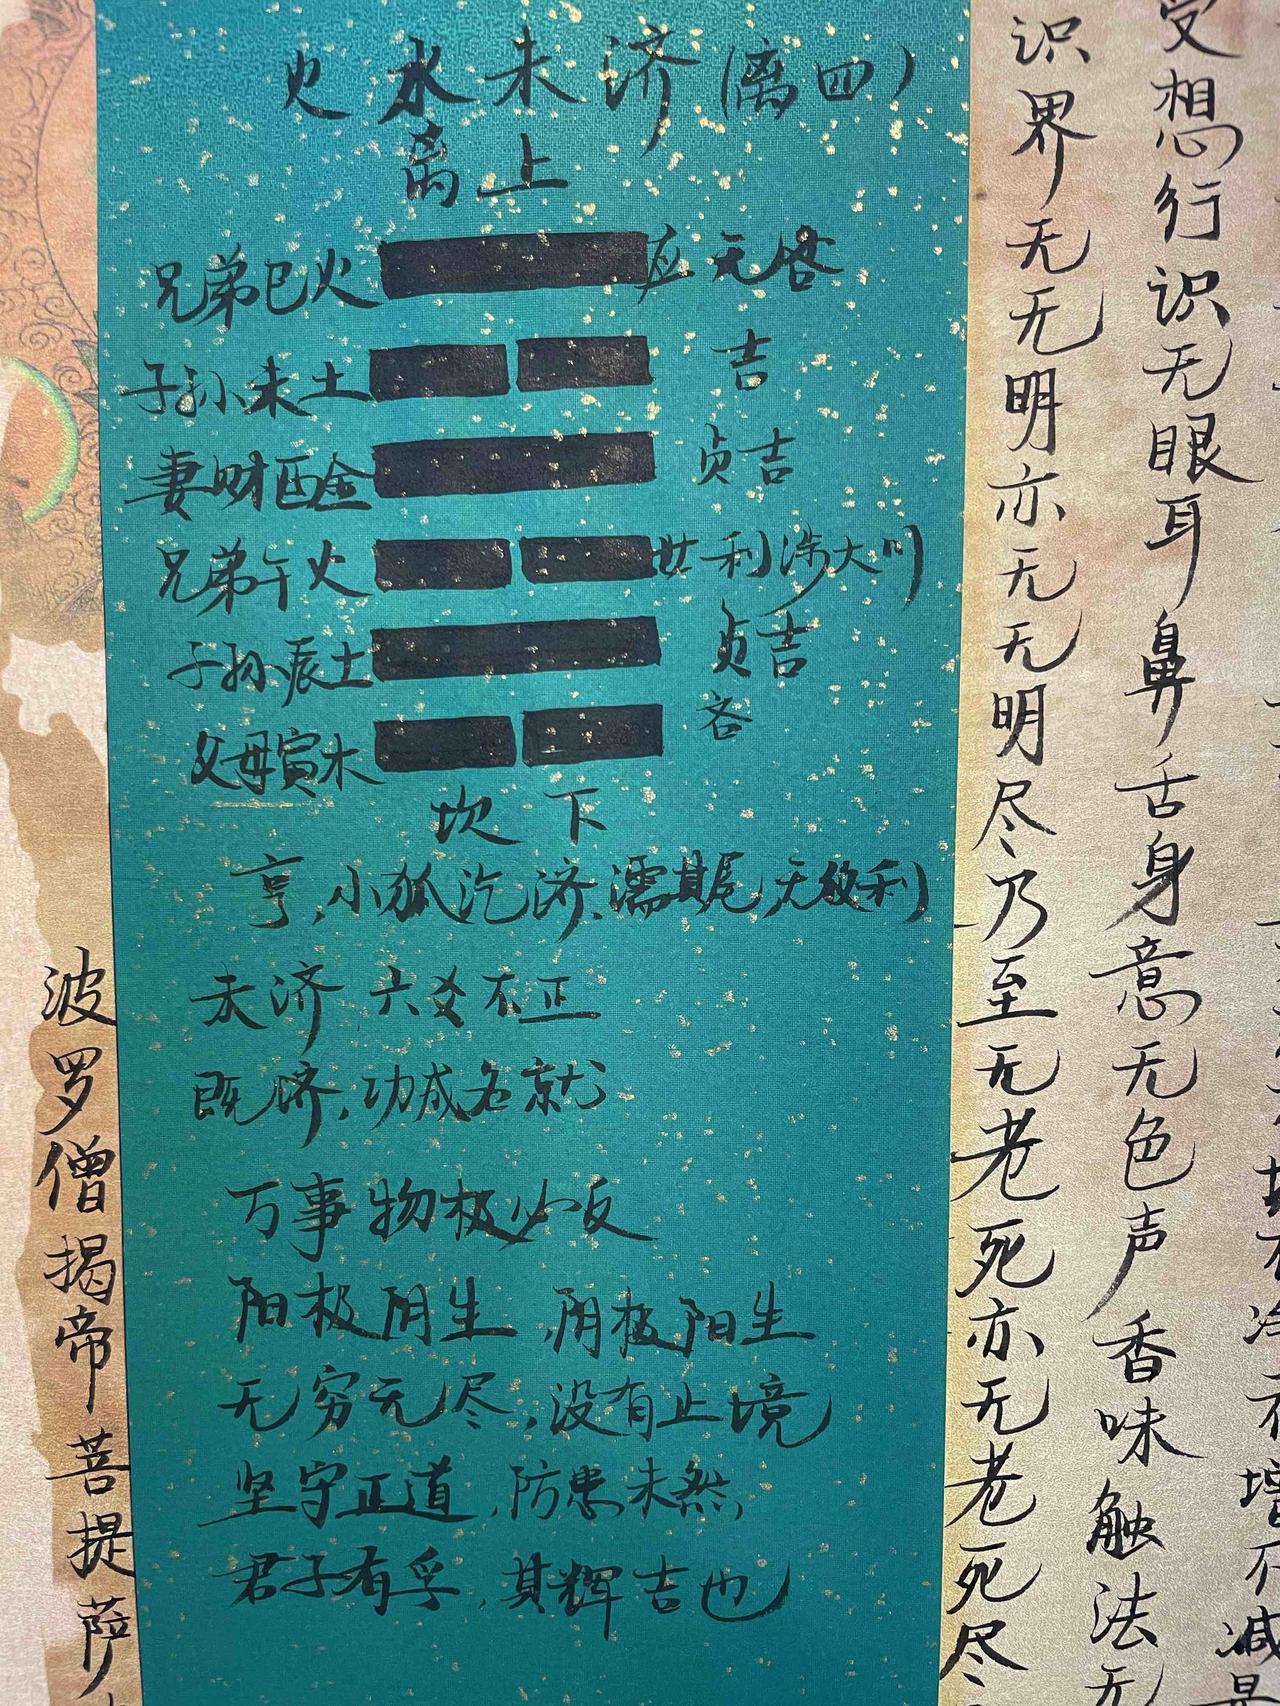 火水未济(离四)
离上
兄弟巳火 应 无咎
子孙未土 吉
妻财酉金 贞吉
兄弟午火 世 利涉大川
子孙辰土 贞吉
父母寅木 吝
坎下
亨,小狐汔济,濡其尾,无攸利
未济 六爻不正
既济,功成名就
万事物极必反
阳极阴生,阴极阳生
无穷无尽,没有止境
坚守正道,防患未然,
君子有孚,其辉吉也
受想行识无眼耳鼻舌身意无色声香味触法无
识界无无明亦无无明尽乃至无老死亦无老死尽
波罗僧揭帝菩提萨